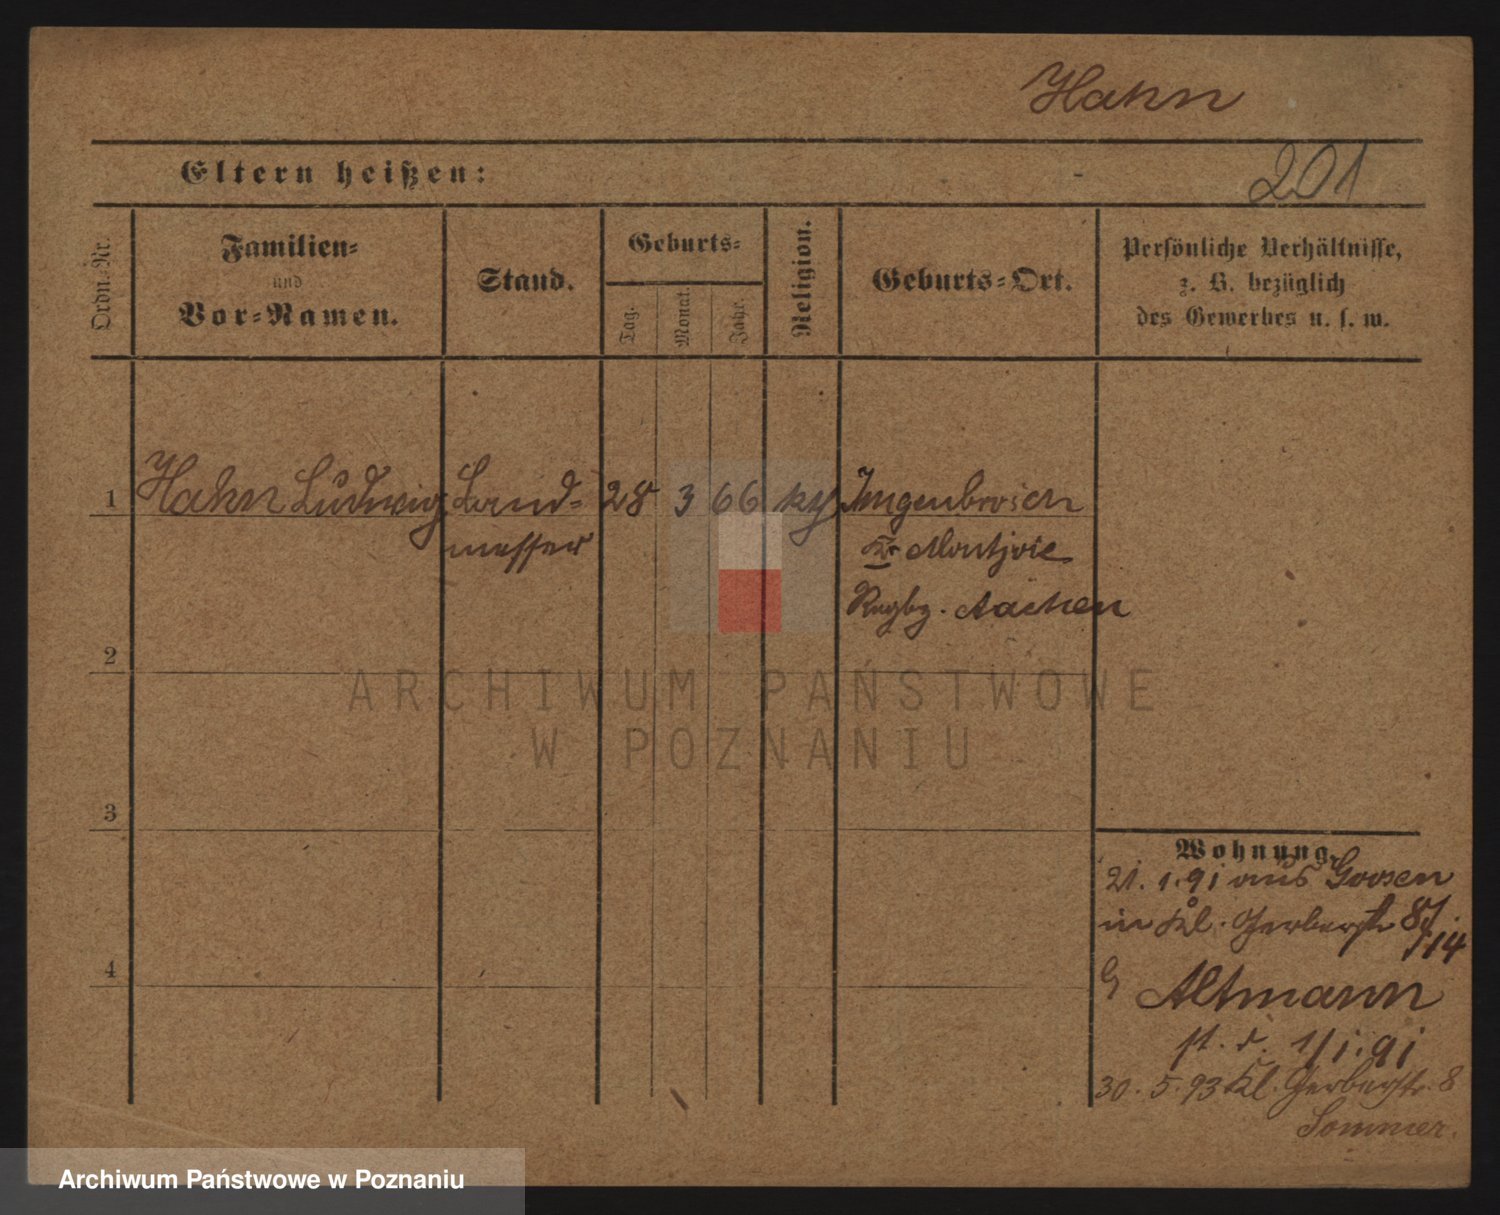 Hahn
201
Eltern heißen:
Ordn. Nr.
Familien-
und
Vor-Namen.
Stand.
Geburts-
Tag.
Monat.
Jahr.
Religion.
Geburts-Ort.
Persönliche Verhältnisse,
z. B. bezüglich
des Gewerbes u. s. w.
1 Hahn Ludwig Land- 28 3 66 Imgenbroich
messer Kr Montjoie
Regbz. Aachen
2
3
4
Wohnung.
21. 1. 91 aus Goosen
in Kl. Gerberstr 8
/14
Altmann
st. d. 1/1. 91
30. 5. 93 Kl. Gerberstr. 8
Sommer.
ARCHIWUM PAŃSTWOWE
W POZNANIU
Archiwum Państwowe w Poznaniu